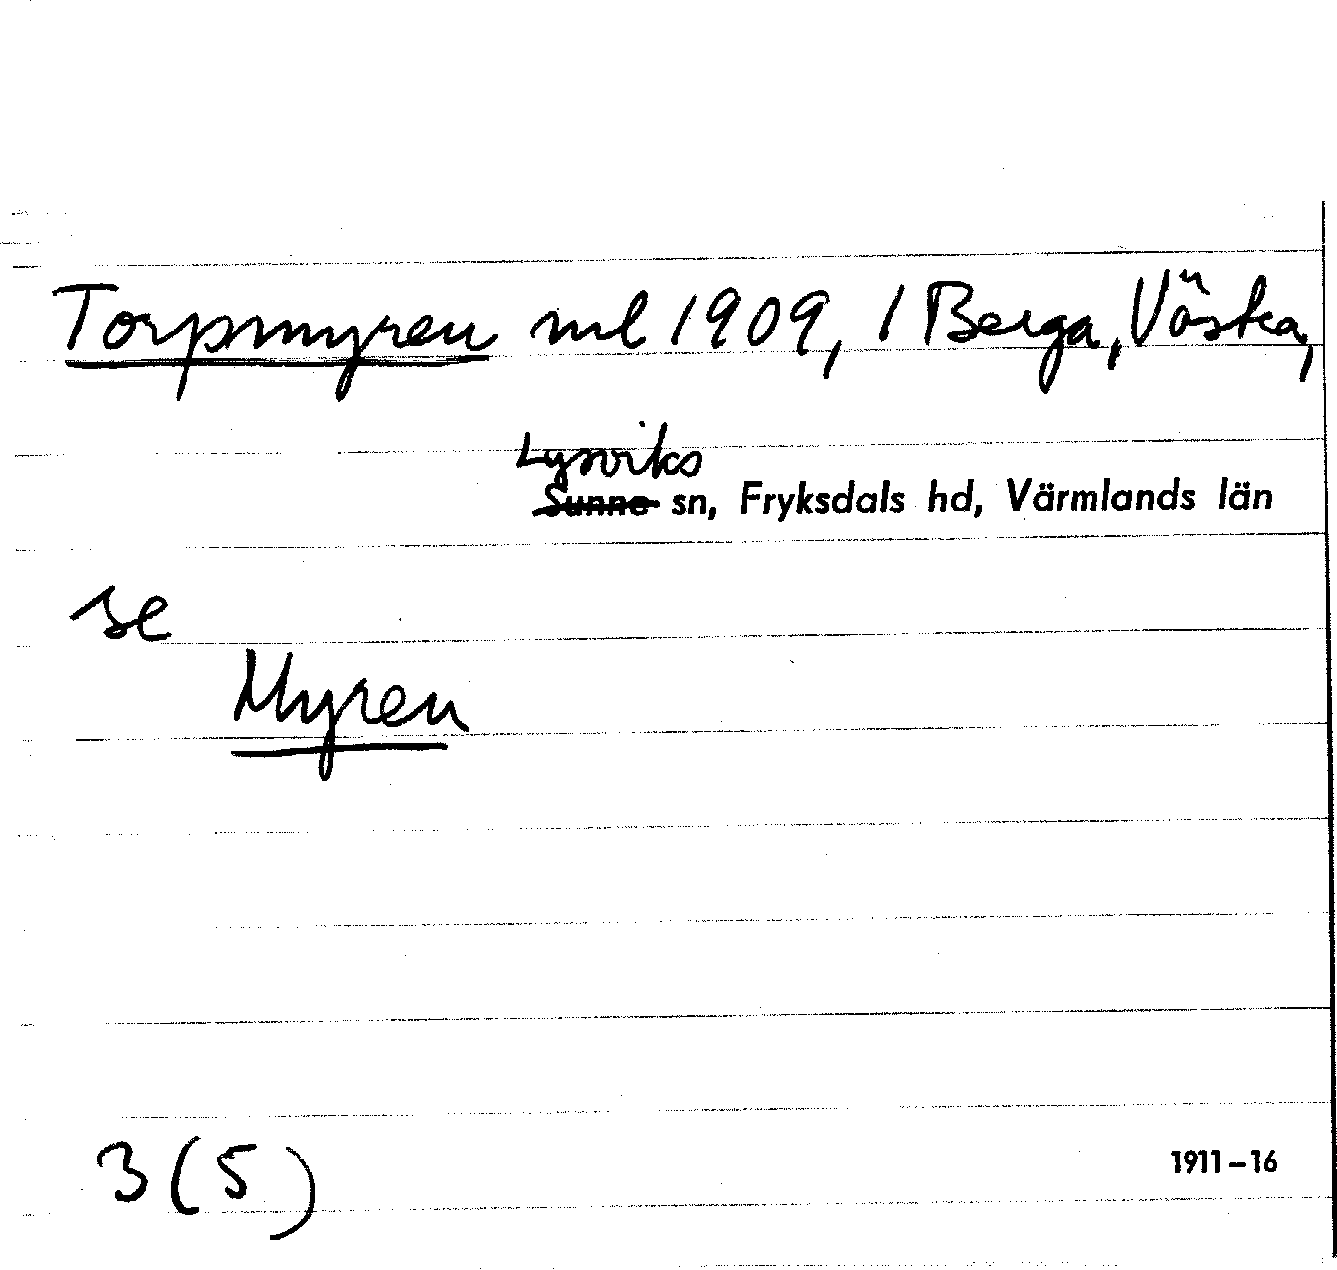 Torpmyren nml 1909, 1 Berga, Västra,
Lysviks
Sunne sn, Fryksdals hd, Värmlands län
se
Myren
3(5)
1911-16